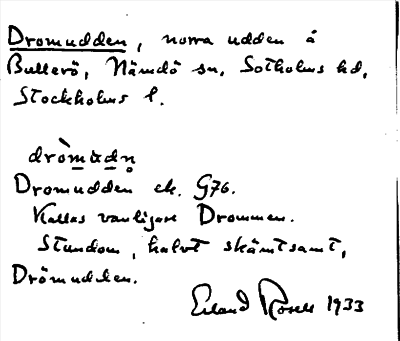 Dromudden, norra udden å
Bullerö, Nämdö sn, Sotholms hd,
Stockholms l.
dròmudn̥
Dromudden ek. G76.
Kallas vanligare Drommen.
Stundom, halvt skämtsamt,
Drömudden.
Erland Rosell 1933